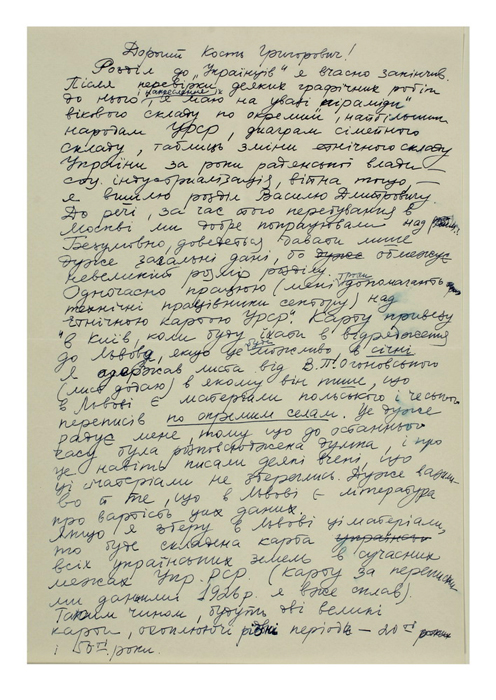 Дорогий Кость Григорович!
Розділ до „Українців" я вчасно закінчив.
Після перевірки деяких графічних робіт
до нього, я маю на увазі „піраміди"
вікового складу по окремим, найбільшим
народам УРСР, діаграм сімейного
складу, таблиць зміни етнічного складу
України за роки радянської влади –
соц. індустріалізація, війна тощо, –
я вишлю розділ Василю Дмитровичу.
До речі за час його перебування в
Москві ми добре попрацювали над
Безумовно, доведеться давати лише
дуже загальні дані, бо дуже обмежує
невеликий розмір розділу.
Одночасно працюю (мені трохи допомагають
технічні працівники сектору) над
етнічною картою УРСР. Карту привезу
в Київ, коли буду їхати в відрядження
до Львова, якщо це буде можливо в січні
Я одержав листа від В.П. Огоновського
(лист додаю) в якому він пише, що
в Львові є матеріали польського і чеського
переписів по окремим селам. Це дуже
радує мене, тому що до останнього
часу була розповсюджена думка, і про
це навіть писали деякі вчені, що
ці матеріали не збереглись. Дуже важли-
во й те, що в Львові є література
про вартість цих даних.
Якщо я зберу в Львові ці матеріали,
то буде складена карта українськ
всіх українських земель в сучасних
межах Укр. РСР. (Карту за переписни-
ми даними 1926 р. я вже склав).
Таким чином, будуть дві великі
карти, охоплюючі різні періоди – 20ті роки
і 50ті роки.